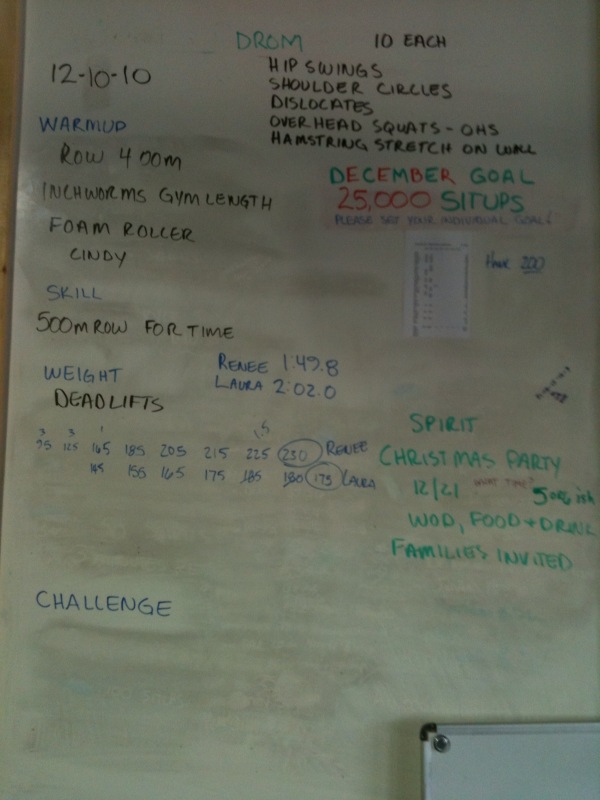 DROM 10 EACH
12-10-10
HIP SWINGS
SHOULDER CIRCLES
DISLOCATES
OVERHEAD SQUATS - OHS
HAMSTRING STRETCH ON WALL
WARMUP
ROW 400M
INCHWORMS GYM LENGTH
FOAM ROLLER
CINDY
DECEMBER GOAL
25,000 SITUPS
PLEASE SET YOUR INDIVIDUAL GOAL!
200
SKILL
500M ROW FOR TIME
RENEE 1:49.8
LAURA 2:02.0
WEIGHT
DEADLIFTS
3 3 1 .5
95 125 165 185 205 215 225 230 RENEE
145 155 165 175 185 180 175 LAURA
SPIRIT
CHRISTMAS PARTY
12/21 WHAT TIME? 5 ish
WOD, FOOD + DRINK
FAMILIES INVITED
CHALLENGE